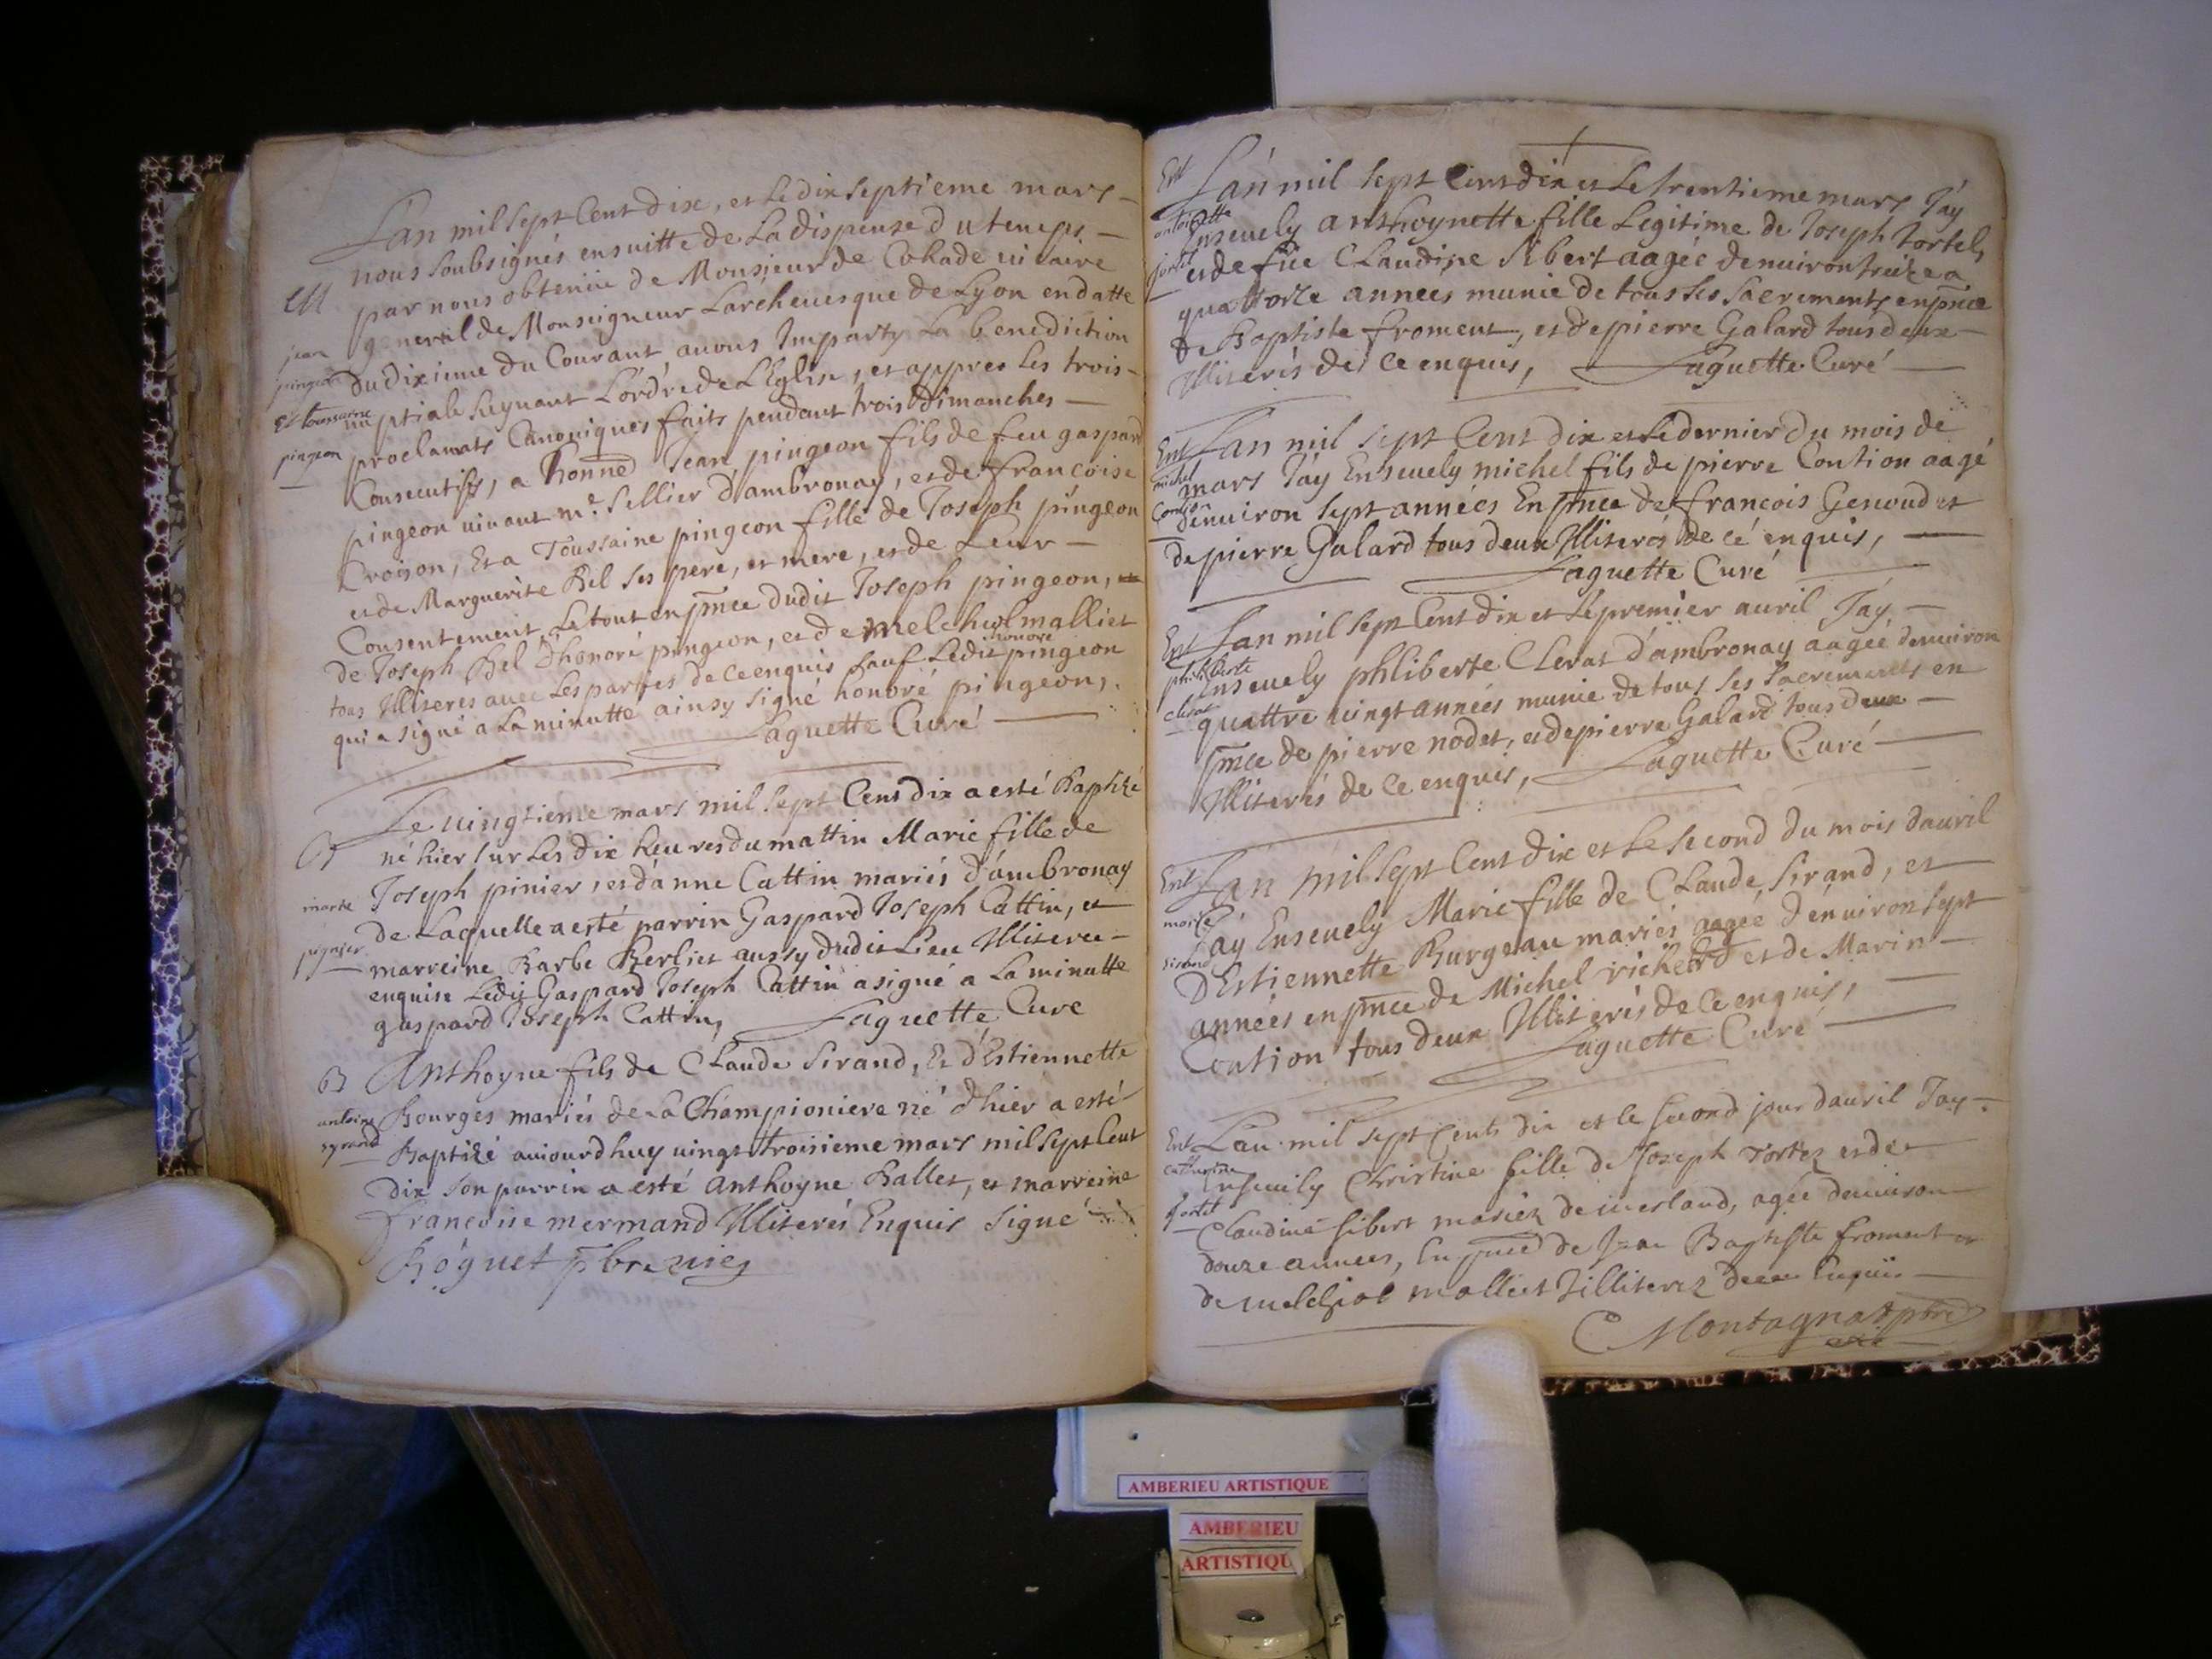 Lán mil sept Cent dix, et Le dix septieme mars
nous soubsignés ensuitte de La dispense du temps
M
par nous obtenüe de Monsieur de Cohade vicaire
general de Monseigneur Larcheuesque de Lyon en datte
jean
pingeon
du dixieme du Courant auons Imparty La benediction
et toussaine
nuptiale suyuant Lórdre de LEglise, et appres Les trois
pingeon
proclamats Canoniques faits pendant trois dimanches
Consecutifs, a honned Jean pingeon fils de feu gaspard
pingeon viuant me. Sellier d'ambronay, et de francoise
Croison, Et a Toussaine pingeon fille de Joseph pingeon
et de Marguerite Bel ses pere, et mere, et de Leur
Consentement, Le tout en pnce dudit Joseph pingeon,
de Joseph Bel d'honoré pingeon, et de melchiol malliet
tous Illiteres auec Les parties de ce enquis sauf Ledit honoré pingeon
qui a signé a La minutte ainsy signé honoré pingeon,
Laguette Curé
Le uingtieme mars mil sept Cent dix a esté Baptizé
B
né hier sur Les dix heures du mattin Marie fille de
marie
Joseph pinier, et dánne Cattin mariés d'ámbronay
de Laquelle a esté parrin Gaspard Joseph Cattin, et
pignier
marreine Barbe Berliet aussy dudit Lieu Illiteree
enquise Ledit Gaspard Joseph Cattin a signé a La minutte
gaspard Joseph Cattin, Laguette Cure
B
Anthoyne fils de Claude Sirand, Et d'Estiennette
antoine
syrand
Bourges mariés de La Championiere né d'hier a esté
Baptizé auiourdhuy uingt troisieme mars mil sept Cent
dix son parrin a esté anthoyne Ballet, et marreine
francoise mermand Illiterés Enquis signé
Róguet pbre vic
Ent
Lán mil sept Cent dix et Le trentieme mars Jáy
antoinette
Enseuely anthoynette fille Legitime de Joseph tortel,
jortel
et de füe Claudine Sibert aagée denuiron treize a
quattorze années munie de tous ses sacrements en pnce
de Baptiste froment, et de pierre Galard tous deux
Illiterés de ce enquis, Laguette Curé
Ent
Lan mil sept Cent dix et Le dernier du mois de
michel
mars Jáy Enseuely michel fils de pierre Contion aagé
Contion
denuiron sept années En pnce de francois Genoud et
de pierre Galard tous deux Illiterés de cé enquis,
Laguette Curé
Ent
Lan mil sept Cent dix et Le premier auril Jáy
philiberte
Enseuely phliberte Clerat d'ambronay aagée denuiron
clerat
quattre uingt années munie de tous ses sacrements en
pnce de pierre nodet, et de pierre Galard tous deux
Illiterés de ce enquis, Laguette Curé
Ent
Lan mil sept Cent dix et Le second du mois dauril
marie
Jáy Enseuely Marie fille de Claude Sirand, et
sirand
DEstiennette Burgeau mariés aagée denuiron sept
années en pnce de Michel richerd et de Marin
Contion tous deux Illiterés de ce enquis,
Laguette Curé
Ent
Lan mil sept Cents dix et le second jour dauril Jay
Ensevily Christine fille de Joseph Tortez et de
jortel
Claudine sibert mariez de merland, agée denuiron
douze annees, En pnce de Jean Baptiste froment et
de melchiol malliet Jilliterez de ce Enquis
Montagnat pbre
AMBERIEU ARTISTIQUE
AMBERIEU
ARTISTIQU